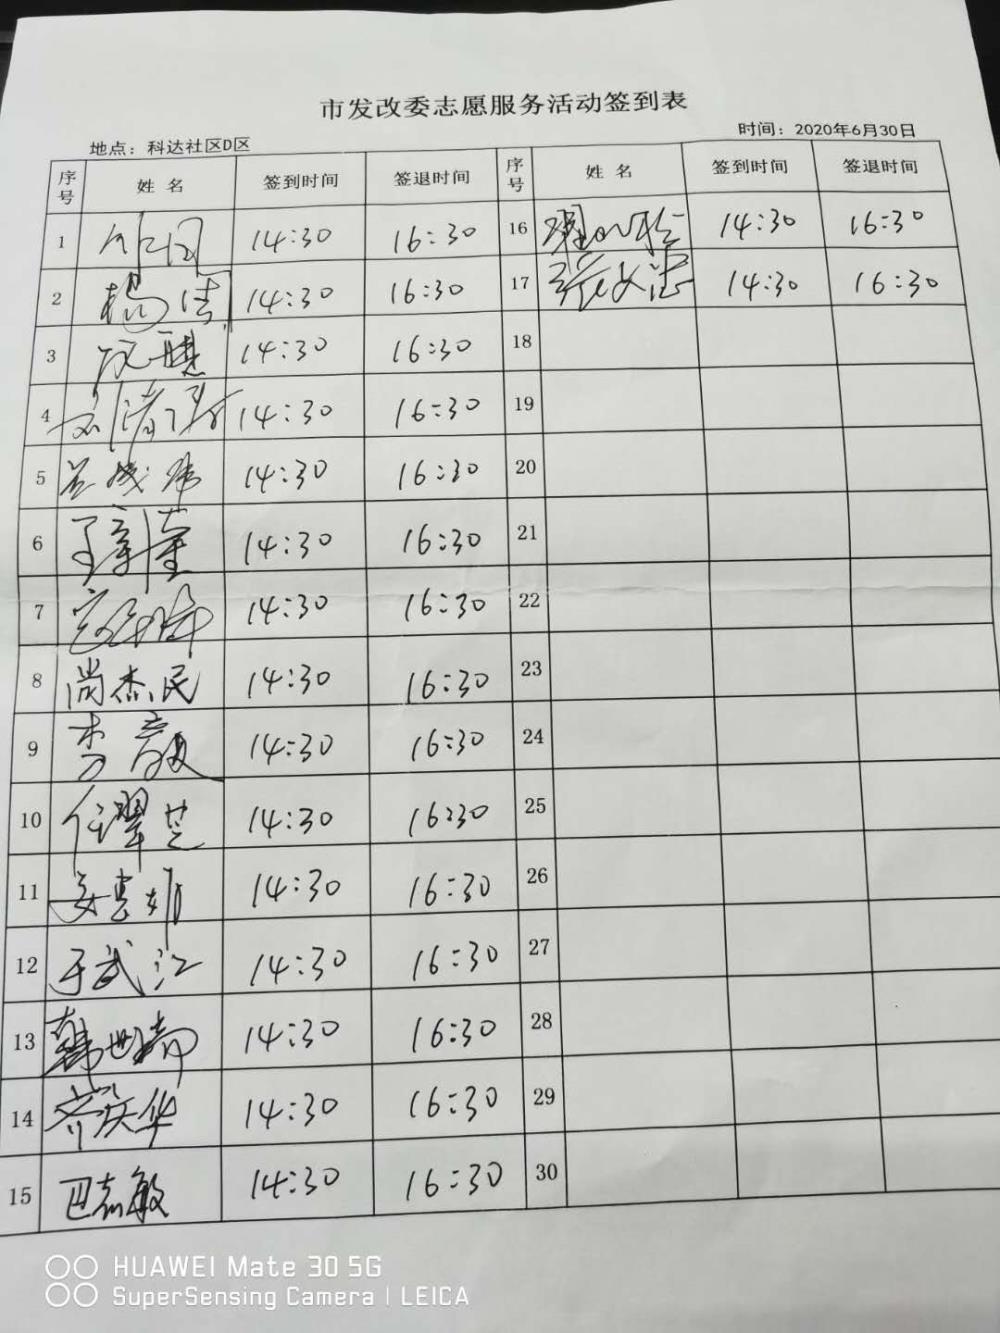 市发改委志愿服务活动签到表
地点：科达社区D区 时间：2020年6月30日
序号 姓名 签到时间 签退时间 序号 姓名 签到时间 签退时间
1 14:30 16:30 16 14:30 16:30
2 杨洁 14:30 16:30 17 张文浩 14:30 16:30
3 14:30 16:30 18
4 14:30 16:30 19
5 14:30 16:30 20
6 14:30 16:30 21
7 14:30 16:30 22
8 尚杰民 14:30 16:30 23
9 李敬 14:30 16:30 24
10 任翠芝 14:30 16:30 25
11 14:30 16:30 26
12 于武江 14:30 16:30 27
13 韩世 14:30 16:30 28
14 齐庆华 14:30 16:30 29
15 巴志敏 14:30 16:30 30
HUAWEI Mate 30 5G
SuperSensing Camera | LEICA